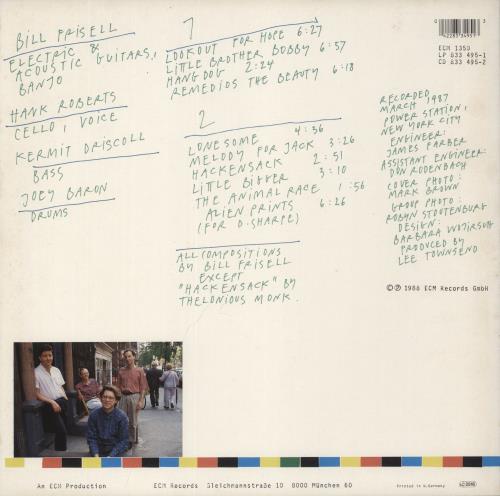 BILL FRISELL
ELECTRIC &
ACOUSTIC GUITARS,
BANJO
HANK ROBERTS
CELLO, VOICE
KERMIT DRISCOLL
BASS
JOEY BARON
DRUMS
1
LOOKOUT FOR HOPE 6:27
LITTLE BROTHER BOBBY 6:57
HANGDOG 2:24
REMEDIOS THE BEAUTY 6:18
2
LONESOME 4:36
MELODY FOR JACK 3:26
HACKENSACK 2:51
LITTLE BIGGER 3:10
THE ANIMAL RACE 1:56
ALIEN PRINTS 6:26
(FOR D. SHARPE)
ALL COMPOSITIONS
BY BILL FRISELL
EXCEPT
"HACKENSACK" BY
THELONIOUS MONK.
ECM 1350
LP 833 495-1
CD 833 495-2
RECORDED
MARCH 1987
POWER STATION,
NEW YORK CITY
ENGINEER:
JAMES FARBER
ASSISTANT ENGINEER:
DON RODENBACH
COVER PHOTO:
MARK BROWN
GROUP PHOTO:
ROBYN STOUTENBURG
DESIGN:
BARBARA WOJIRSCH
PRODUCED BY
LEE TOWNSEND
© ℗ 1988 ECM Records GmbH
An ECM Production
ECM Records Gleichmannstraße 10 8000 München 60
Printed in W.Germany